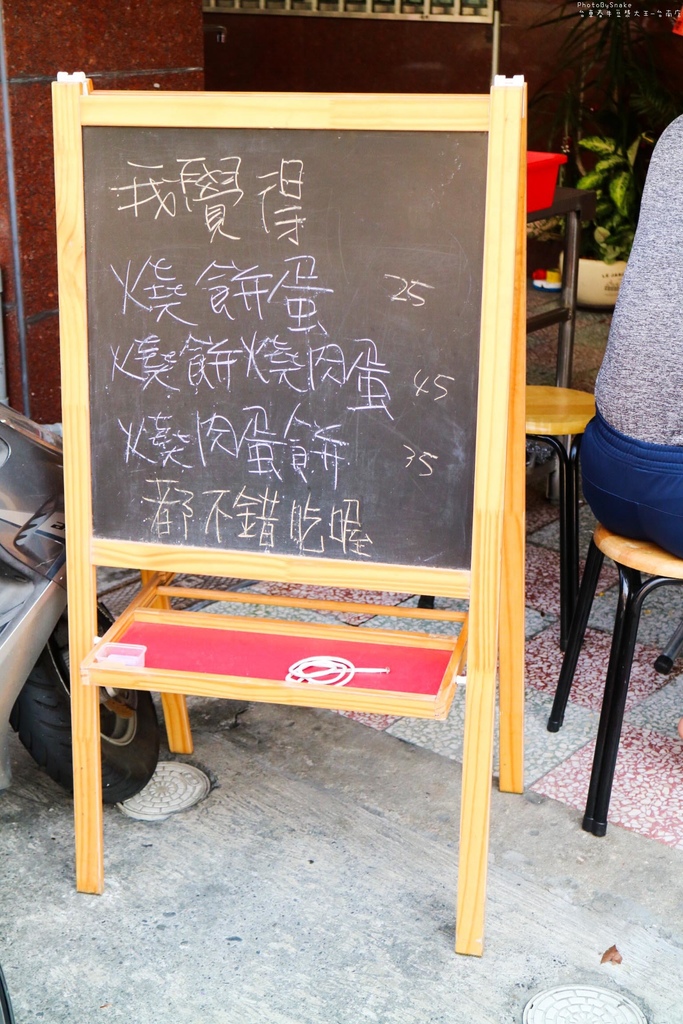 PhotoBySnake
我覺得
燒餅蛋 25
燒餅燒肉蛋 45
燒肉蛋餅 35
都不錯吃喔